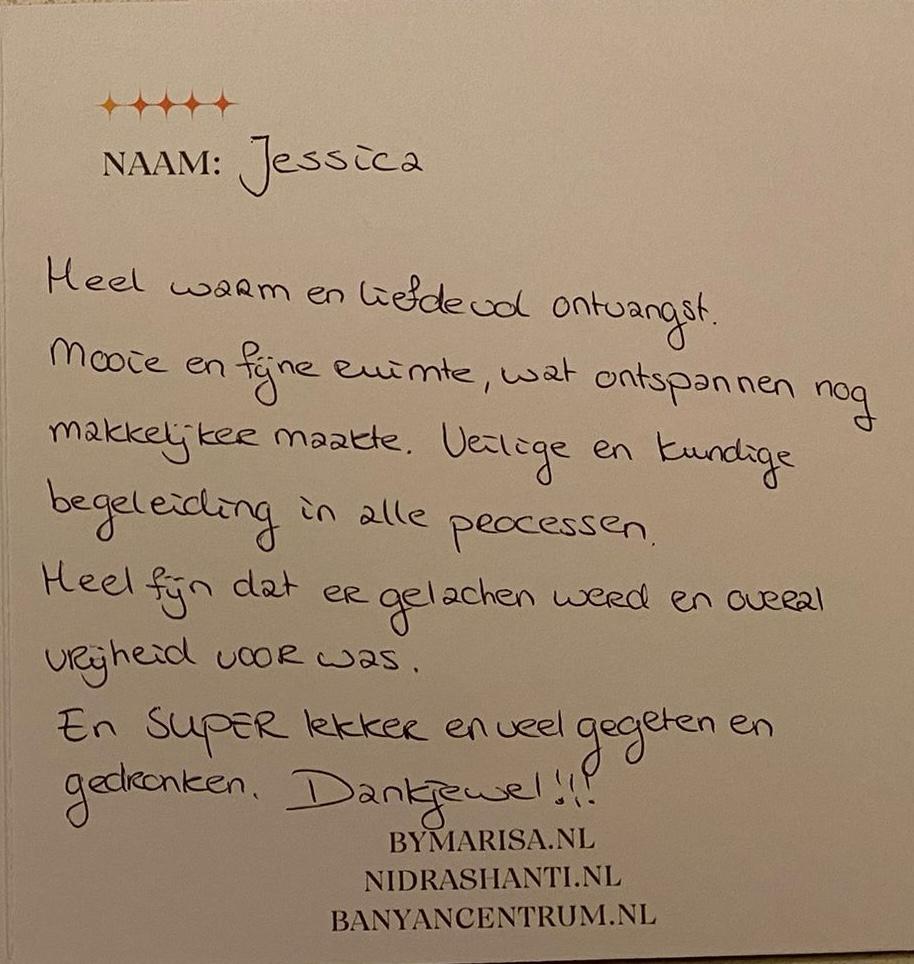 NAAM: Jessica
Heel warm en liefdevol ontvangst.
Mooie en fijne ruimte, wat ontspannen nog
makkelijker maakte. Veilige en kundige
begeleiding in alle processen.
Heel fijn dat er gelachen werd en overal
vrijheid voor was.
En SUPER lekker en veel gegeten en
gedronken. Dankjewel!!!
BYMARISA.NL
NIDRASHANTI.NL
BANYANCENTRUM.NL